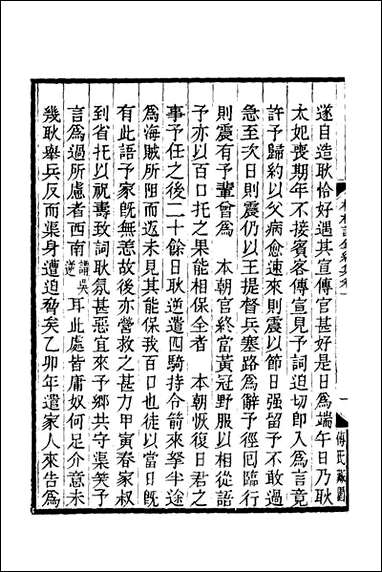 遂自造耿恰好遇其宣傳官甚好是日為端午日乃耿
太妃喪期年不接賓客傳宣見予詞迫切即入為言竟
許予歸約以父病愈速來則震以節日强留予不敢違
急至次日則震仍以王提督兵塞路為辭予徑回臨行
則震有予輩曾為　本朝官終當黃冠野服以相從語
予亦以百口托之果能相保全者　本朝恢復日君之
事予任之後二十餘日耿逆遣四騎持令箭來拏半途
為海賊所阻而返未見其能保我百口也徒以當日旣
有此語予家旣無恙故後亦營救之甚力甲寅春家叔
到省托以祝壽致詞耿氛甚惡宜來予鄉共守渠笑予
言為過所慮者西南謂吳逆耳此處皆庸奴何足介意未
幾耿舉兵反而渠身遭迫脅矣乙卯年遣家人來告為
一
傅氏藏園